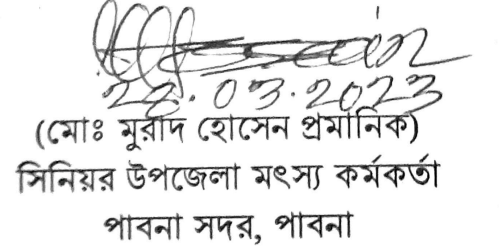 28.03.2023
(মোঃ মুরাদ হোসেন প্রমানিক)
সিনিয়র উপজেলা মৎস্য কর্মকর্তা
পাবনা সদর, পাবনা